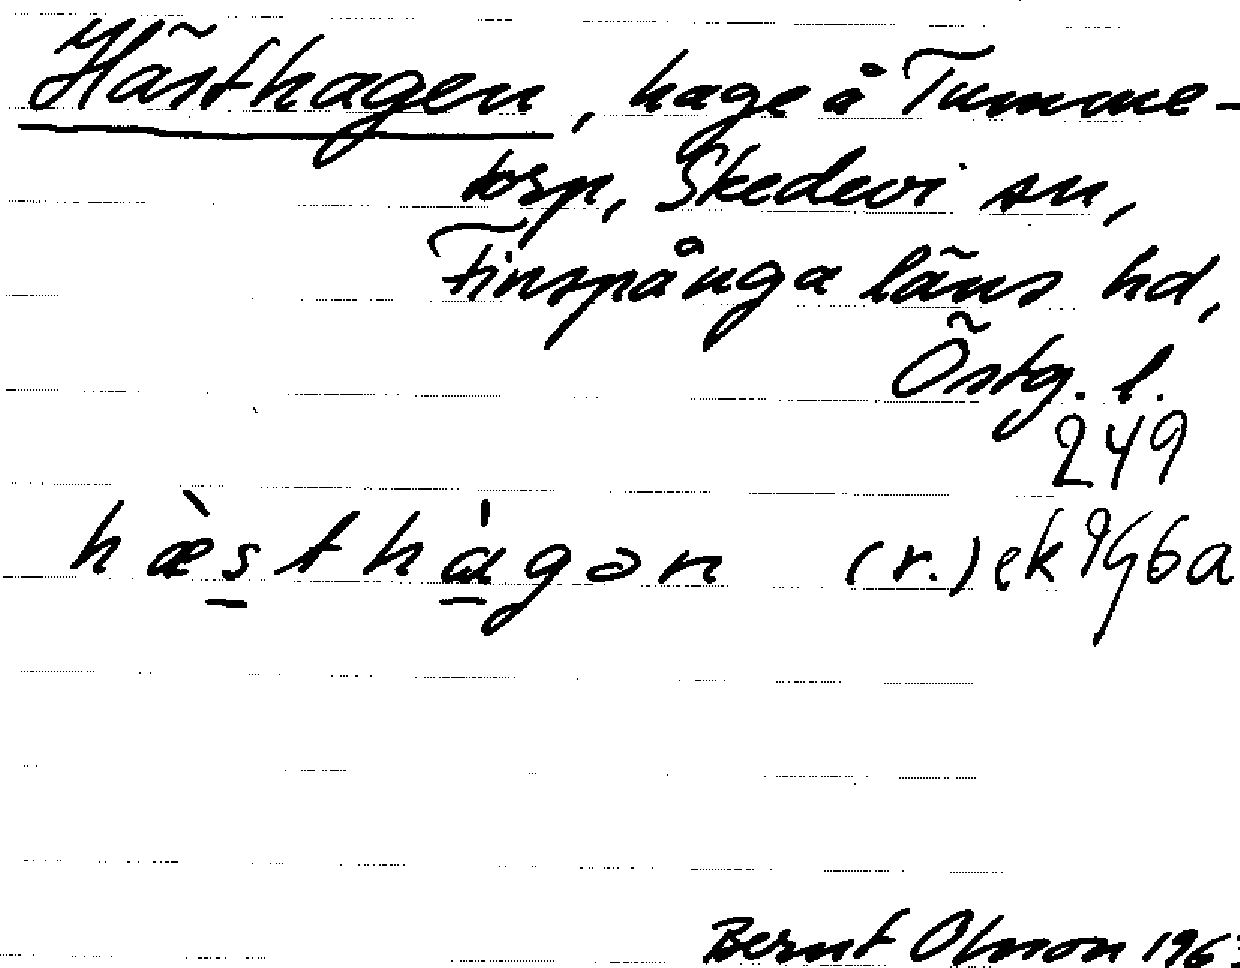 Hästhagen, hage å Tumme-
torp, Skedevi sn,
Finspånga läns hd,
Östg. l.
249
hæ̀sthágən (r.) ek 9G6a
Bernt Olsson 1963